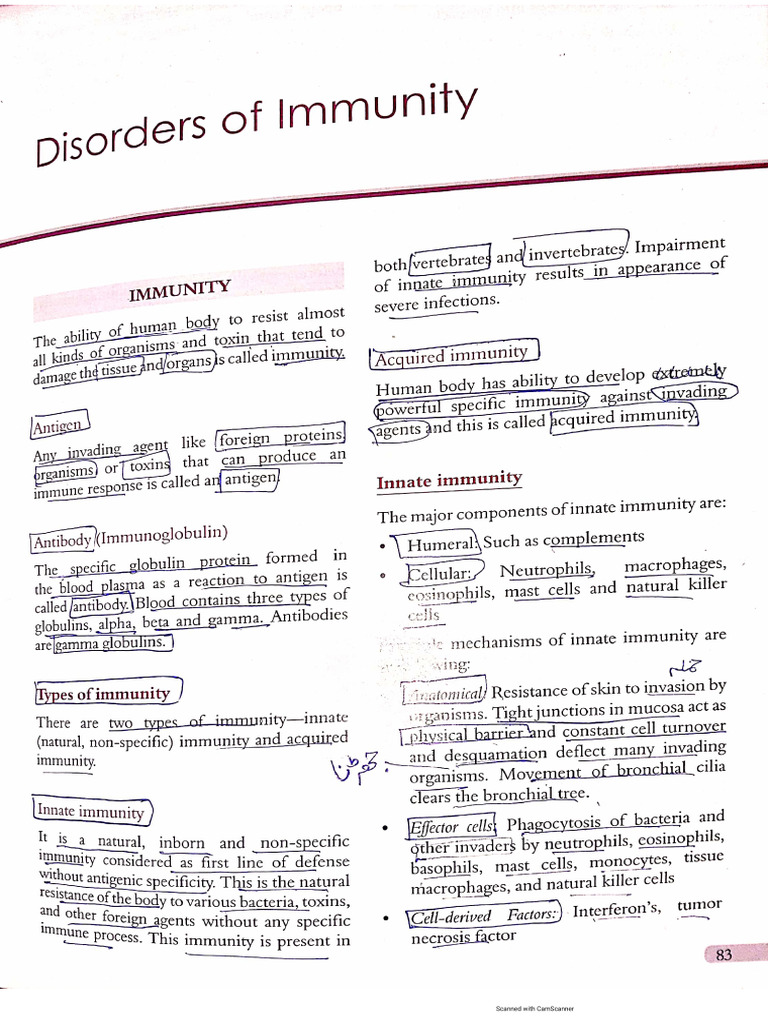 Disorders of Immunity
IMMUNITY
The ability of human body to resist almost
all kinds of organisms and toxin that tend to
damage the tissue and organs is called immunity.
Antigen
Any invading agent like foreign proteins,
organisms or toxins that can produce an
immune response is called an antigen.
Antibody (Immunoglobulin)
The specific globulin protein formed in
the blood plasma as a reaction to antigen is
called antibody. Blood contains three types of
globulins, alpha, beta and gamma. Antibodies
are gamma globulins.
Types of immunity
There are two types of immunity—innate
(natural, non-specific) immunity and acquired
immunity.
Innate immunity
It is a natural, inborn and non-specific
immunity considered as first line of defense
without antigenic specificity. This is the natural
resistance of the body to various bacteria, toxins,
and other foreign agents without any specific
immune process. This immunity is present in
both vertebrates and invertebrates. Impairment
of innate immunity results in appearance of
severe infections.
Acquired immunity
Human body has ability to develop extremely
powerful specific immunity against invading
agents and this is called acquired immunity.
Innate immunity
The major components of innate immunity are:
• Humeral: Such as complements
• Cellular: Neutrophils, macrophages,
eosinophils, mast cells and natural killer
cells
mechanisms of innate immunity are
Anatomical: Resistance of skin to invasion by
organisms. Tight junctions in mucosa act as
physical barrier and constant cell turnover
and desquamation deflect many invading
organisms. Movement of bronchial cilia
clears the bronchial tree.
• Effector cells: Phagocytosis of bacteria and
other invaders by neutrophils, eosinophils,
basophils, mast cells, monocytes, tissue
macrophages, and natural killer cells
• Cell-derived Factors: Interferon's, tumor
necrosis factor
83
Scanned with CamScanner